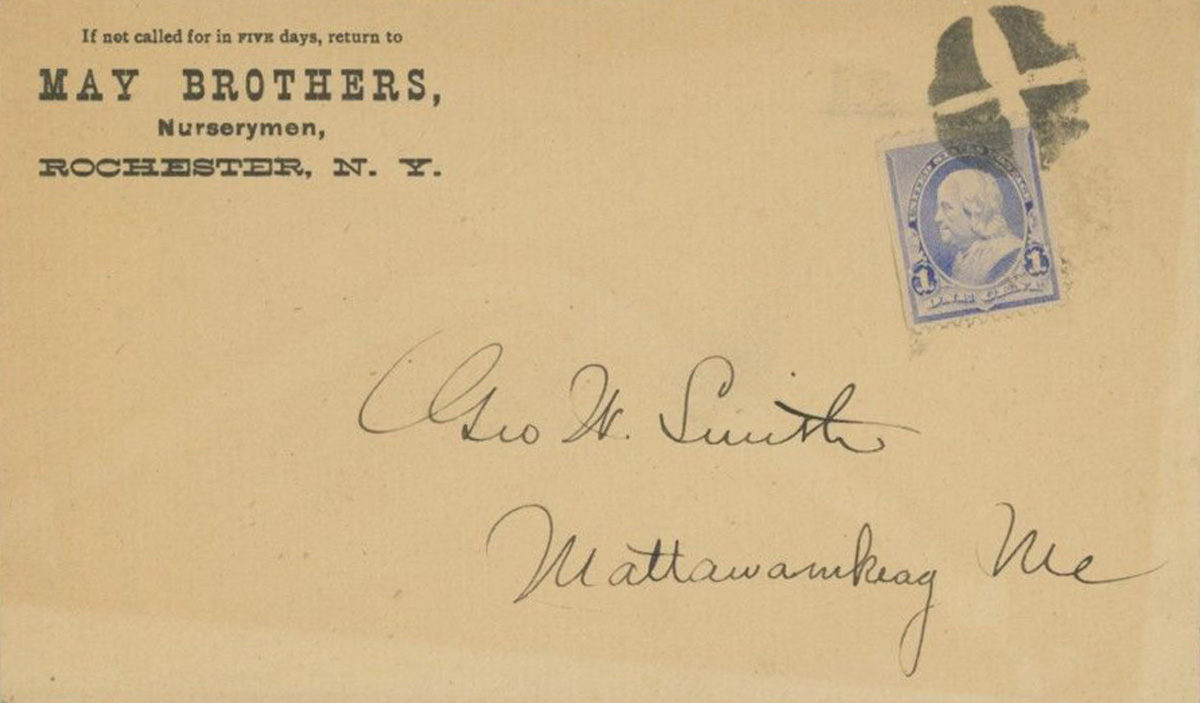 If not called for in FIVE days, return to
MAY BROTHERS,
Nurserymen,
ROCHESTER, N. Y.
UNITED STATES POSTAGE
1 1
ONE CENT
Geo W. Smith
Mattawamkeag Me